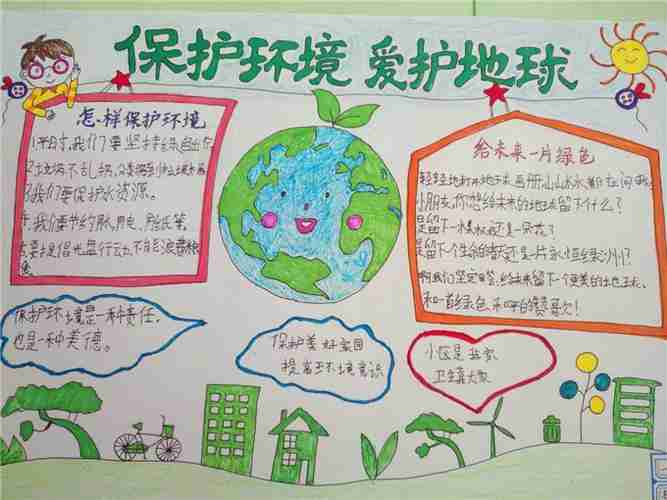 保护环境 爱护地球
怎样保护环境
1.平时,我们要坚持绿色出行
2.垃圾不乱扔,分类
3.我们要保护水资源。
4.我们要节约
5.要提倡光盘行动,不能浪费粮
食
给未来一片绿色
轻轻地打开地球画册,山山水水都在问我:
小朋友,你想给未来的地球留下什么?
是留下一棵
是留下个生命的 还是一片永恒绿洲?
啊我们坚定回答,给未来留下一个更美的地球,
和一首绿色、和平的赞歌!
保护环境是一种责任,
也是一种美德。
保护美好家园
提高环境意识
小区是我家
卫生靠大家